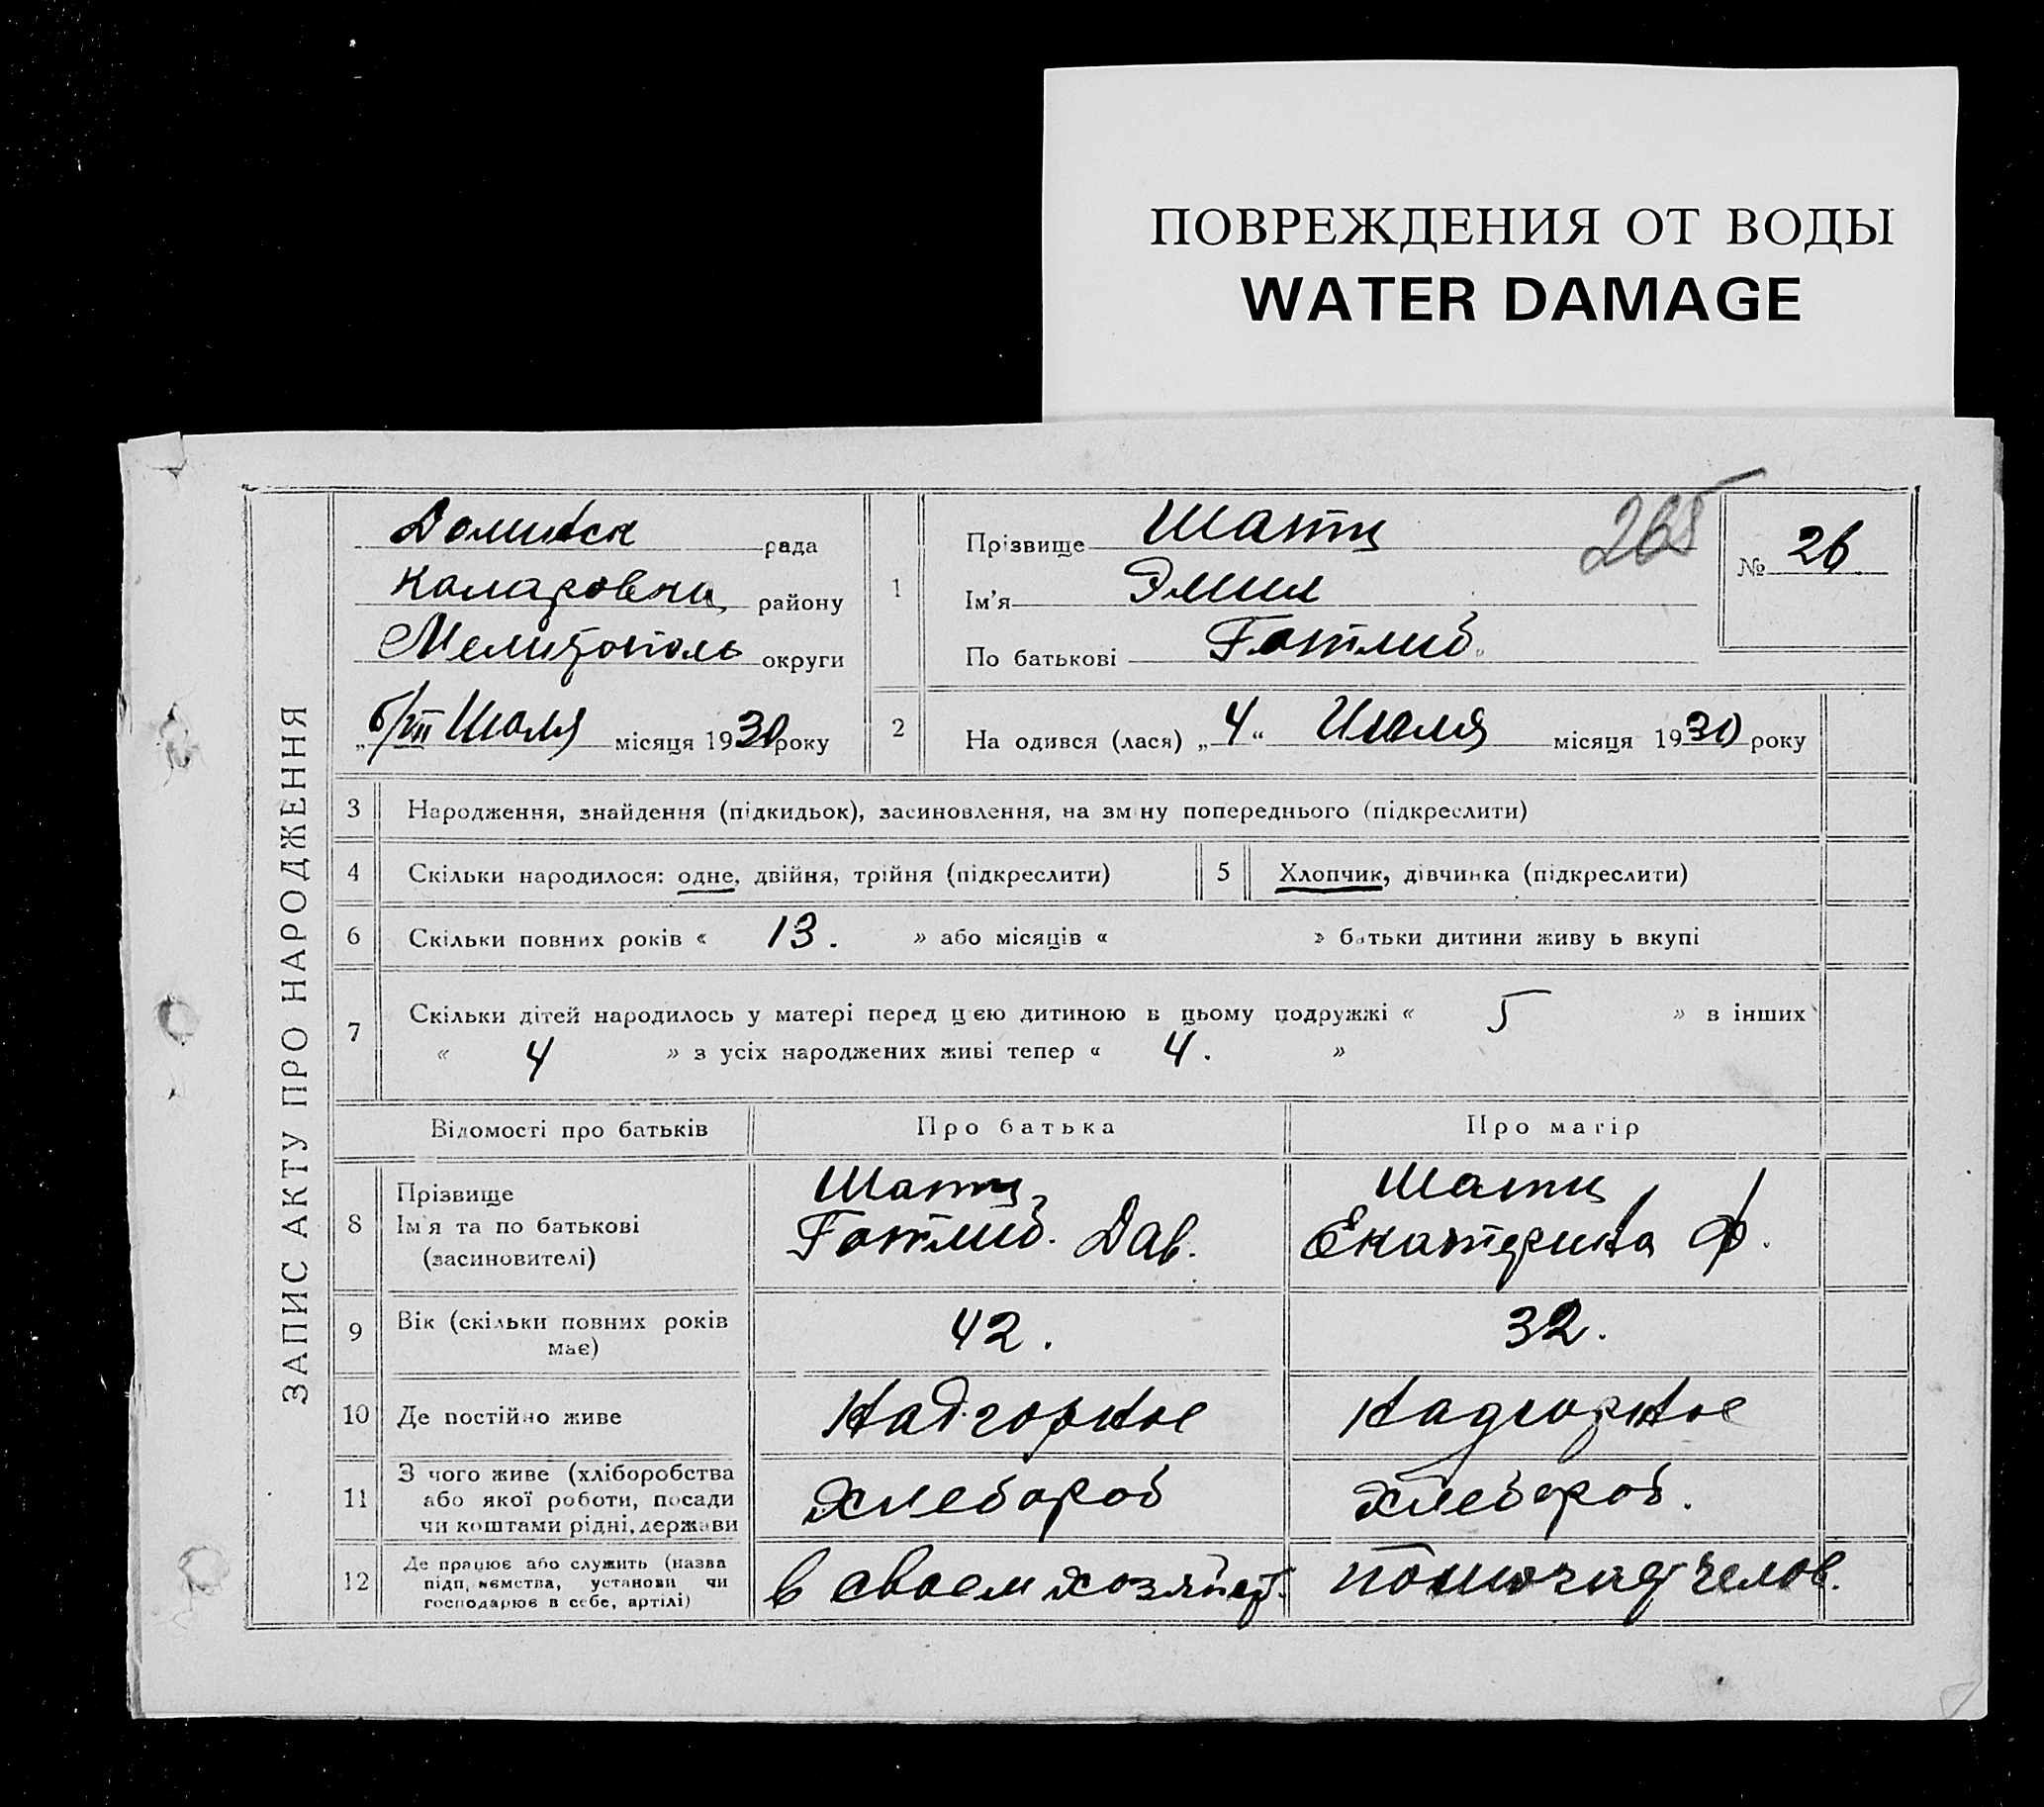 ПОВРЕЖДЕНИЯ ОТ ВОДЫ
WATER DAMAGE
ЗАПИС АКТУ ПРО НАРОДЖЕННЯ
Долинск рада
Каларовка району
Мелитополь округи
„6/VII Июля місяця 1930 року
1
Прізвище Шатц
265
Ім'я Эмил
По батькові Готлиб.
№ 26
2
На одився (лася) „4“ Июля місяця 1930 року
3 Народження, знайдення (підкидьок), засиновлення, на зміну попереднього (підкреслити)
4 Скільки народилося: одне, двійня, трійня (підкреслити)
5 Хлопчик, дівчинка (підкреслити)
6 Скільки повних років « 13. » або місяців « » батьки дитини живу ь вкупі
7 Скільки дітей народилось у матері перед цією дитиною в цьому подружжі « 5 » в інших
« 4 » з усіх народжених живі тепер « 4. »
Відомості про батьків Про батька Про матір
8 Прізвище
Ім'я та по батькові
(засиновителі)
Шатц
Готлиб. Дав.
Шатц
Екатерина Ф.
9 Вік (скільки повних років
має)
42. 32.
10 Де постійно живе Надгорное Надгорное
11 З чого живе (хліборобства
або якої роботи, посади
чи коштами рідні, держави
Хлебороб Хлебороб.
12 Де працює або служить (назва
підп, ємства, установи чи
господарює в себе, артілі)
в своем хозяйст.
челов.